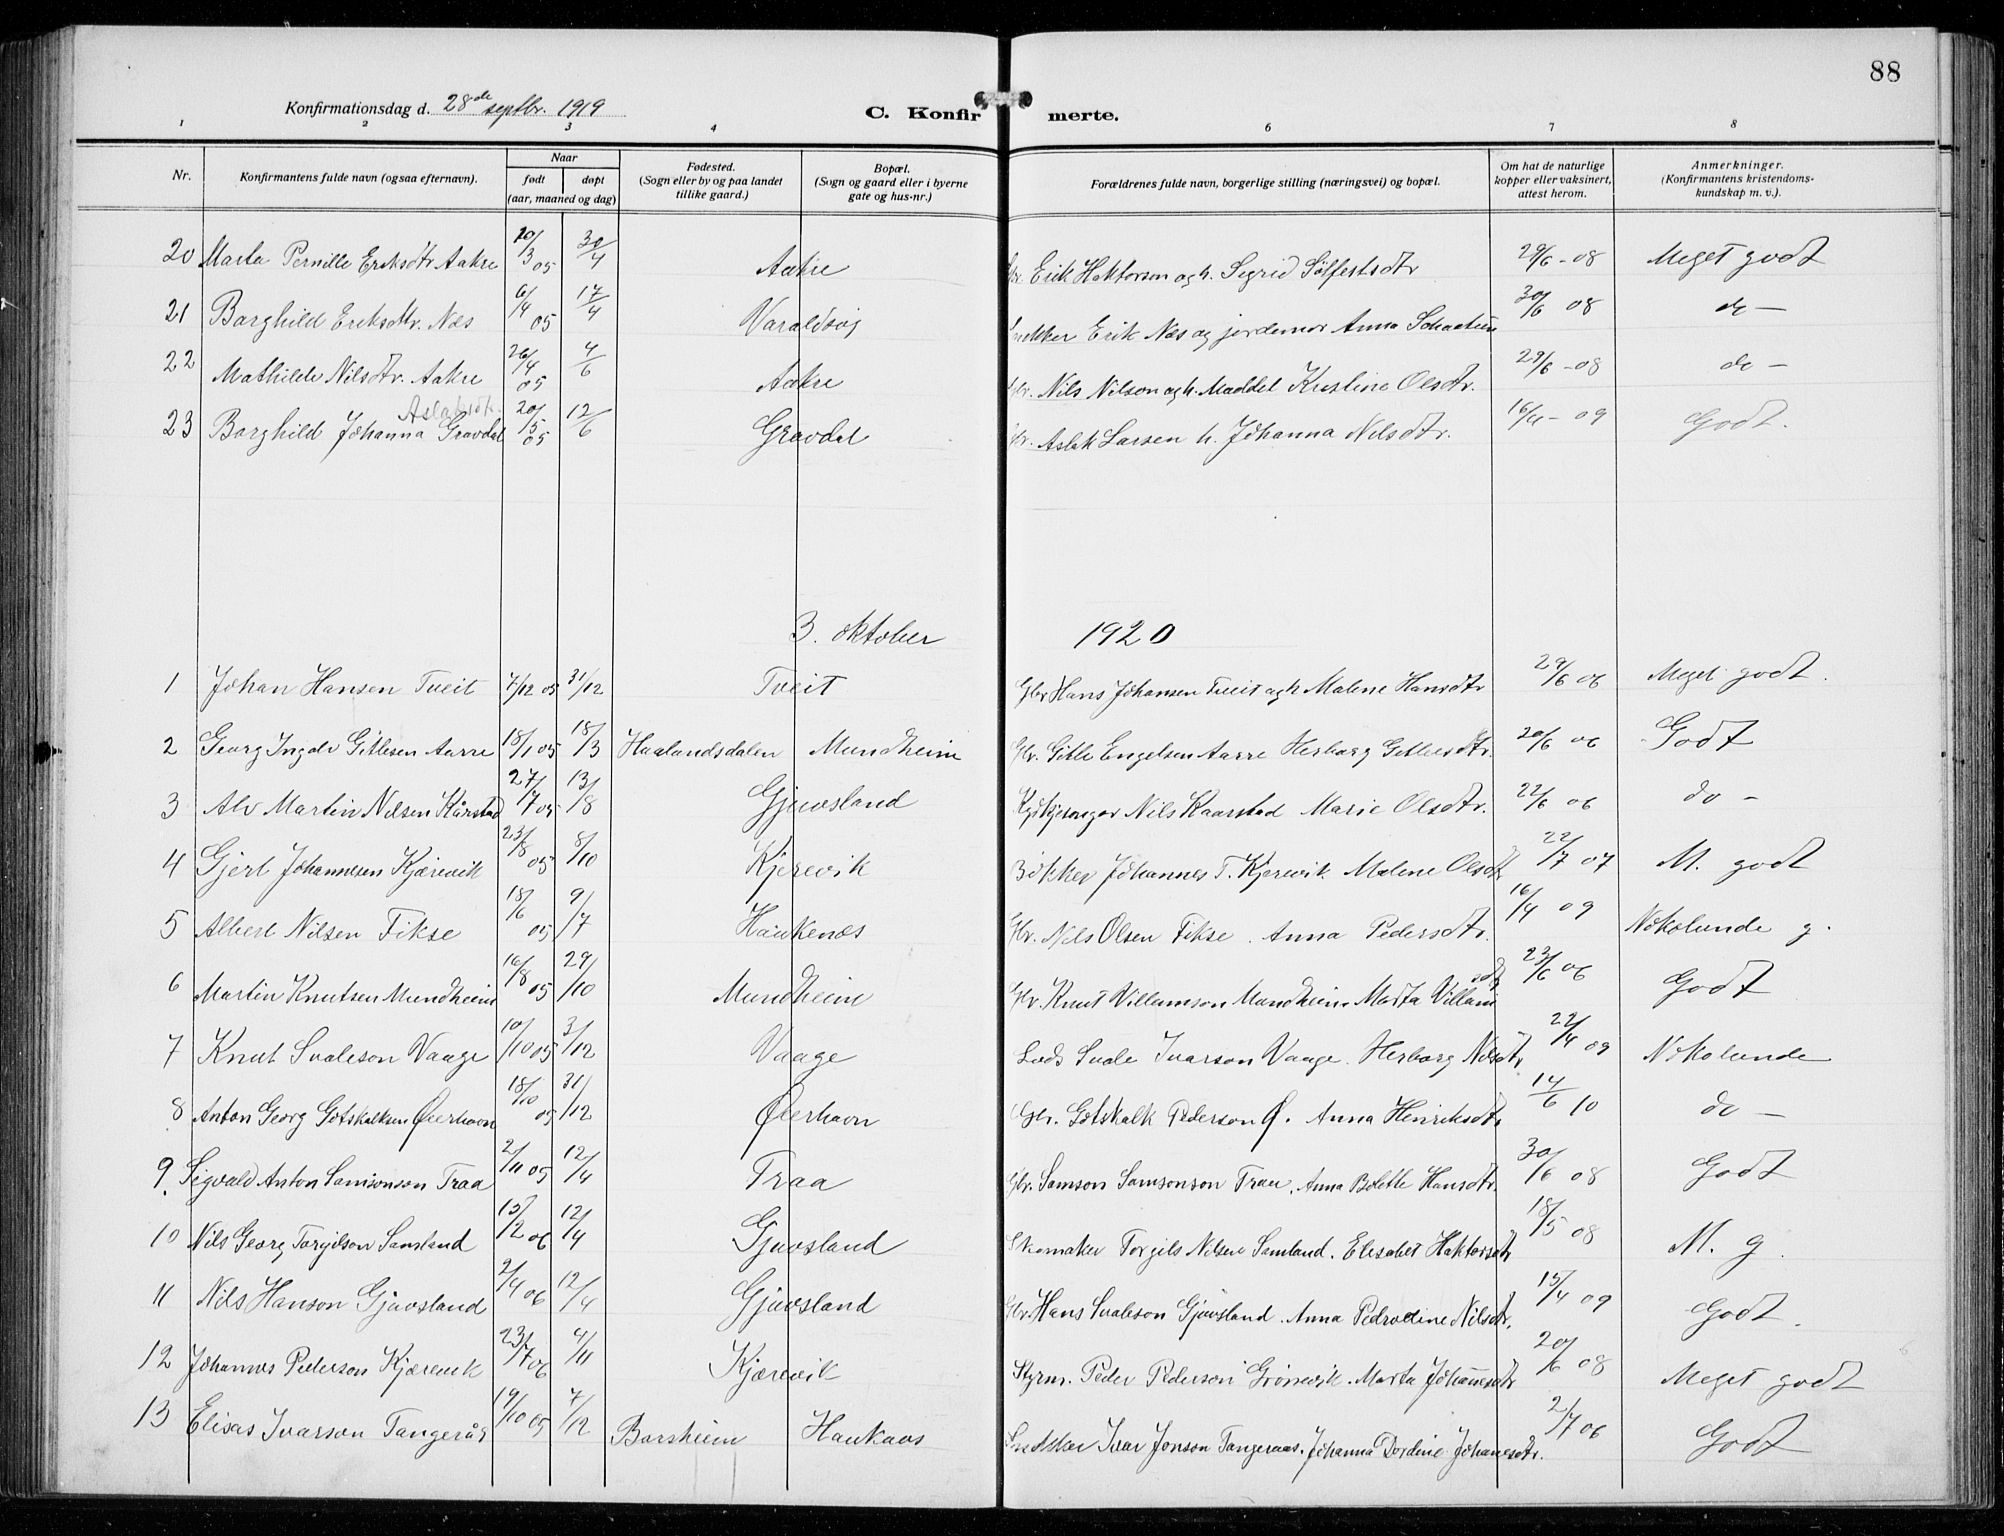 88
Konfirmationsdag d. 28de septbr. 1919
C. Konfirmerte.
1 2 3 4 6 7 8
Nr.
Konfirmantens fulde navn (ogsaa efternavn).
Naar
født døpt
(aar, maaned og dag)
Fødested.
(Sogn eller by og paa landet
tillike gaard.)
Bopæl.
(Sogn og gaard eller i byerne
gate og hus-nr.)
Forældrenes fulde navn, borgerlige stilling (næringsvei) og bopæl.
Om hat de naturlige
kopper eller vaksinert,
attest herom.
Anmerkninger.
(Konfirmantens kristendoms-
kundskap m. v.).
20 Marta Pernille Eriksdtr Aakre 10/3 05 30/4 Aakre Gbr. Erik Haktorson og h. Sigrid Sølfestsdtr 29/6 - 08 Meget godt
21 Borghild Eriksdtr. Næs 6/4 05 17/4 Varaldsøy Snekker Erik Næs og jordemor Anna 30/6 08 do -
22 Mathilde Nilsdtr. Aakre 26/4 05 4/6 Aakre Gbr. Nils Nilson og h. Maddel Kristine Olsdtr. 29/6 - 08 do -
Aslaksdtr.
23 Borghild Johanna Gravdal 20/5 05 12/6 Gravdal Gbr. Aslak Larsen h. Johanna Nilsdtr. 16/4 - 09 Godt.
3. oktober 1920
1 Johan Hansen Tveit 7/12 05 31/12 Tveit Gbr Hans Johansen Tveit og h Malene Hansdtr 29/6 06 Meget godt.
2 Georg Ingolv Gitlesen Aarre 18/1 05 18/3 Haalandsdalen Mundheim Gbr. Gitle Engelsen Aarre Herborg Gitlesdtr. 20/6 06 Godt
3 Alv Martin Nilsen Kårstad 27/7 05 13/8 Gjuvsland Kyrkjesongar Nils Kaarstad Marie Olsdtr. 22/6 06 do -
4 Gjert Johannesen Kjærevik 23/8 05 8/10 Kjerevik Bøkker Johannes T. Kjerevik. Malene Olsdtr 22/7 07 M. godt
5 Albert Nilsen Fikse 18/6 05 9/7 Haukenæs Gbr. Nils Olsen Fikse. Anna Pedersdtr. 16/4 09 Nokolunde g.
6 Martin Knutsen Mundheim 16/8 05 29/10 Mundheim Gbr. Knut Villumson Mundheim Marta Villumsdtr 23/6 06 Godt
7 Knut Svaleson Vaage 10/10 05 3/12 Vaage Lods Svale Ivarson Vaage. Herborg Nilsdtr 22/4 09 Nokolunde
8 Anton Georg Gotskalksen Øierhavn 18/10 05 31/12 Øierhavn Gbr. Gotskalk Pederson Ø. Anna Henriksdtr. 14/6 10 do -
9. Sigvald Anton Samsonson Traa 2/11 05 12/4 Traa Gbr. Samson Samsonson Traa. Anna Bolette Hansdtr. 30/6 08 Godt
10 Nils Georg Torgilson Samland 15/2 06 12/4 Gjuvsland Skomaker Torgils Nilsen Samland. Elisabet Haktorsdtr 18/5 08 M. g.
11 Nils Hanson Gjuvsland 2/4 06 12/4 Gjuvsland Gbr. Hans Svaleson Gjuvsland. Anna Pedrodine Nilsdtr. 15/4 09 Godt.
12 Johannes Pederson Kjærevik 23/7 06 4/11 Kjærevik Styrm. Peder Pederson Grønevik. Marta Johannesdtr 20/6 08 Meget godt
13 Elisas Ivarson Tangerås 19/10 05 7/12 Barsheim Haukaas Snedker Ivar Jonson Tangeraas. Johanna Dordine Johanesdtr. 2/7 06 Godt